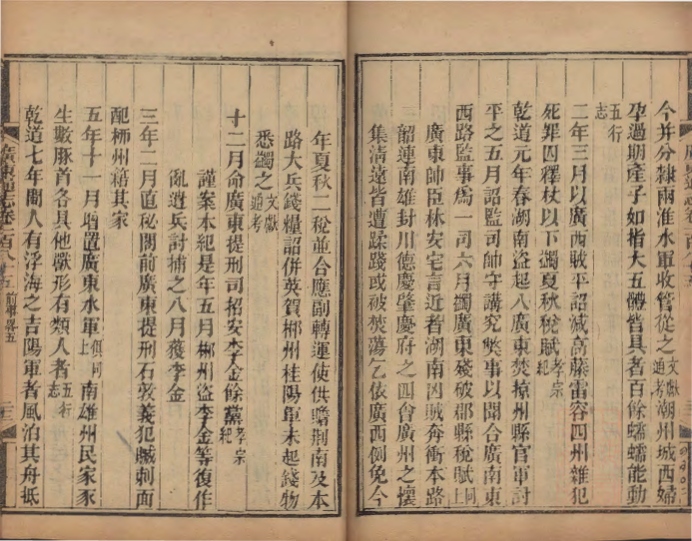 今并分隸兩淮水軍收管從之文獻通考潮州城西婦
孕過期產子如指大五體皆具者百餘蠕蠕能動
五行志
二年三月以廣西賊平詔減高藤雷容四州雜犯
死罪囚釋杖以下蠲夏秋稅賦孝宗紀
乾道元年春湖南盜起入廣東焚掠州縣官軍討
平之五月詔監司帥守講究弊事以聞合廣南東
西路監事為一司六月蠲廣東殘破郡縣稅賦同上
廣東帥臣林安宅言近者湖南凶賊奔衝本路
韶連南雄封川德慶肇慶府之四會廣州之懷
集清遠皆遭蹂踐或被焚蕩乞依廣西例免今
年夏秋二稅並合應副轉運使供贍荆南及本
路大兵錢糧詔併英賀郴州桂陽軍未起錢物
悉蠲之文獻通考
十二月命廣東提刑司招安李金餘黨孝宗紀
謹案本紀是年五月郴州盜李金等復作
亂遣兵討捕之八月獲李金
三年二月直秘閣前廣東提刑石敦義犯贓刺面
配柳州籍其家
五年十一月增置廣東水軍俱同上南雄州民家豕
生數豚首各具他獸形有類人者五行志
乾道七年閩人有浮海之吉陽軍者風泊其舟抵
廣東通志卷一百八十五 前事畧五